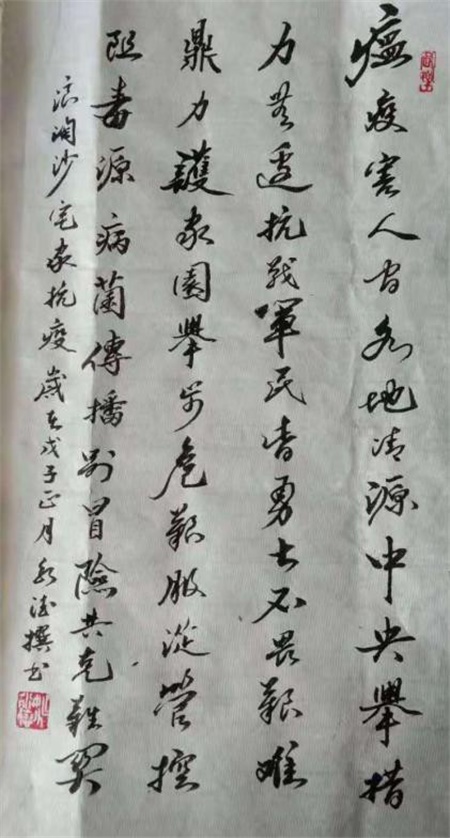 瘟疫害人各地清源中央舉措
力無邊抗戰軍民皆勇士不畏艱難
鼎力護家園舉步危艱服從管控
阻毒源病菌傳播别冒險共克難関
浪淘沙宅家抗疫歲在戊子正月撰书